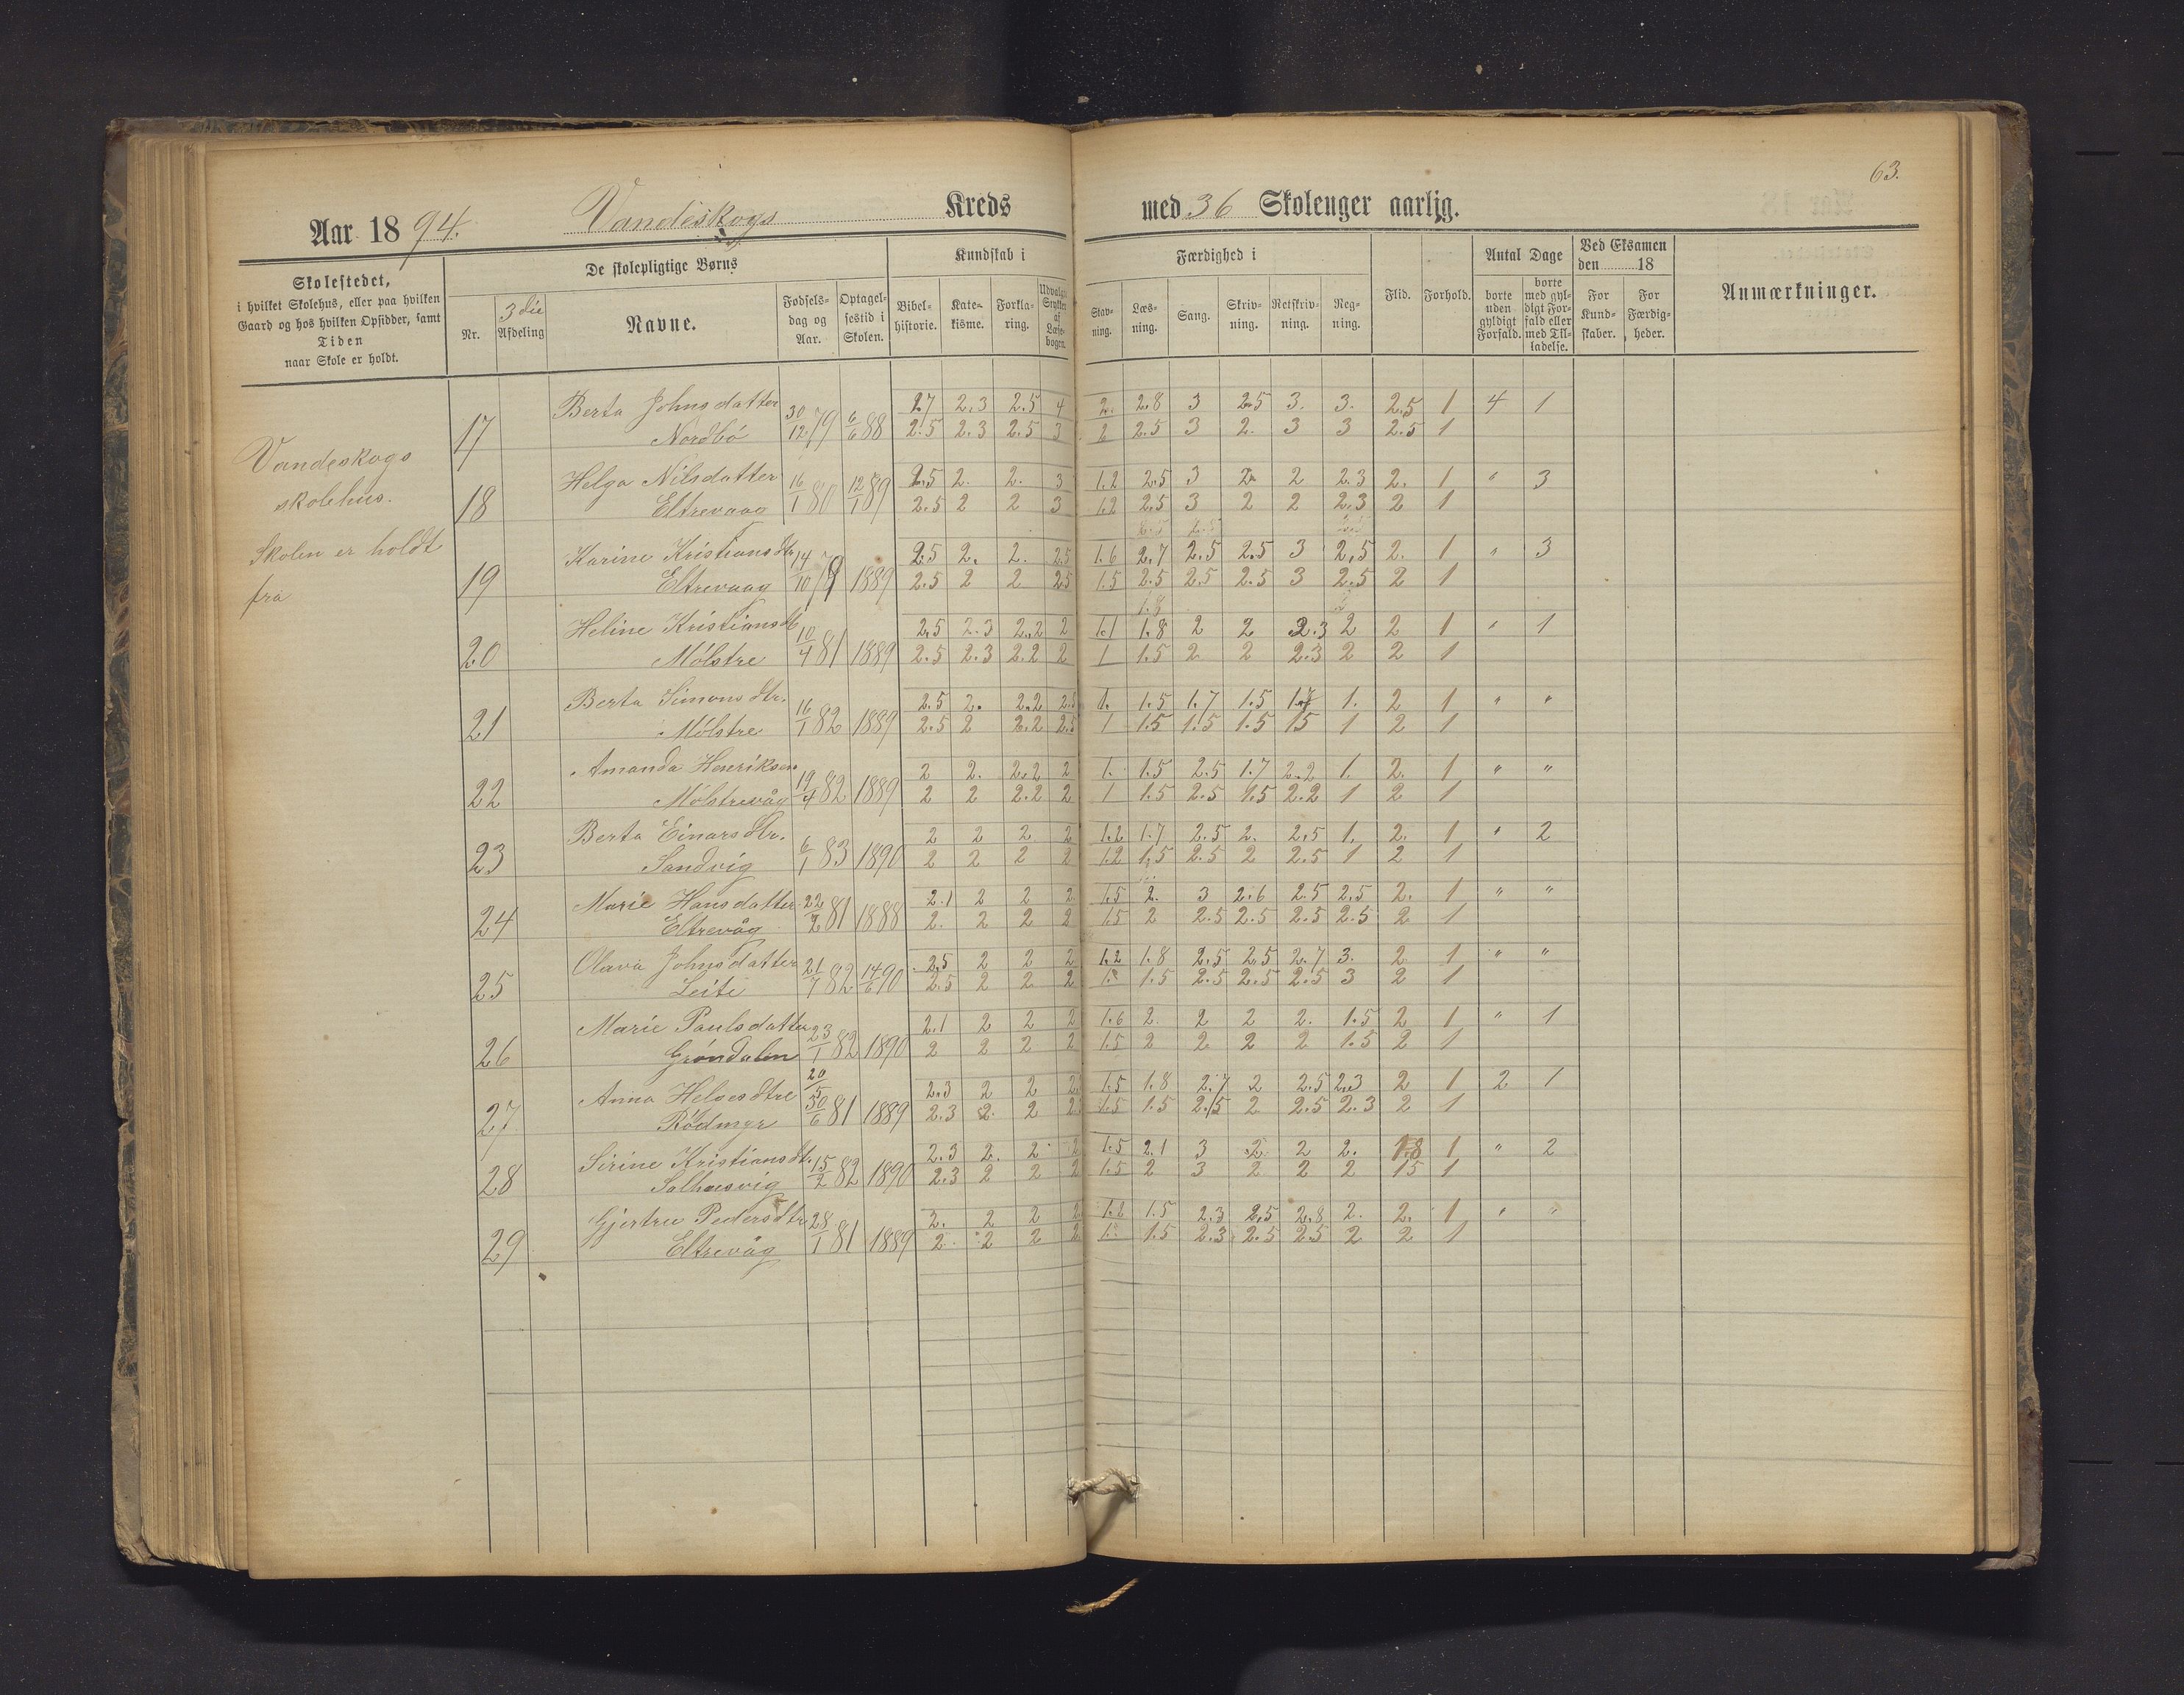 63.
Aar 1894. Vandeskogs Kreds med 36 Skolenger aarlig.
Skolestedet,
i hvilket Skolehus, eller paa hvilken
Gaard og hos hvilken Opsidder, samt
Tiden
naar Skole er holdt.
De skolepligtige Børns
Nr.
3die
Afdeling
Navne.
Fødsels-
dag og
Aar.
Optagel-
sestid i
Skolen.
Kundskab i
Bibel-
historie.
Kate-
kisme.
Forkla-
ring.
Udvalgte
Stykker
af
Læse-
bogen.
Færdighed i
Stav-
ning.
Læs-
ning.
Sang.
Skriv-
ning.
Retskriv-
ning.
Reg-
ning.
Flid.
Forhold.
Antal Dage
borte
uden
gyldigt
Forfald.
borte
med gyl-
digt For-
fald eller
med Til-
ladelse.
Ved Eksamen
den 18
For
Kund-
skaber.
For
Færdig-
heder.
Anmærkninger.
Vandeskogs
skolehus.
Skolen er holdt
fra
17 Berta Johnsdatter 30/12 79 6/6 88 2.7 2.3 2.5 4 2. 2.8 3 2.5 3. 3. 2.5 1 4 1
Nordbö 2.5 2.3 2.5 3 2 2.5 3 2. 3 3 2.5 1
18 Helga Nilsdatter 16/1 80 12/1 89 2.5 2. 2. 3 1.2 2.5 3 2. 2 2.3 2. 1 " 3
Eltrevaag 2.5 2 2 3 1.2 2.5 3 2 2 2.3 2 1
19 Karine Kristiansdtr 14/10 79 1889 2.5 2. 2. 2.5 1.6 2.7 2.5 2.5 3 2.5 2. 1 " 3
Eltrevaag 2.5 2 2 2.5 1.5 2.5 2.5 2.5 3 2.5 2 1
1.8
20 Heline Kristiansdt 10/4 81 1889 2.5 2.3 2.2 2 1.1 1.8 2 2 2.3 2 2 1 " 1
Mölstre 2.5 2.3 2.2 2 1 1.5 2 2 2.3 2 2 1
21 Berta Simonsdtr. 16/1 82 1889 2.5 2. 2.2 2.5 1. 1.5 1.7 1.5 1.7 1. 2 1 " "
Mölstre 2.5 2 2.2 2.5 1 1.5 1.5 1.5 15 1 2 1
22 Amanda Henriksen 19/4 82 1889 2 2. 2.2 2 1. 1.5 2.5 1.7 2.2 1. 2. 1 " "
Mölstrevåg 2 2 2.2 2 1 1.5 2.5 1.5 2.2 1 2 1
23 Berta Einarsdtr. 6/1 83 1890 2 2 2 2 1.2 1.7 2.5 2. 2.5 1. 2. 1 " 2
Sandvig 2 2 2 2 1.2 1.5 2.5 2 2.5 1 2 1
24 Marie Hansdatter 22/2 81 1888 2.1 2 2 2 1.5 2. 3 2.6 2.5 2.5 2. 1 " "
Eltrevåg 2. 2 2 2 1.5 2 2.5 2.5 2.5 2.5 2 1
25 Olava Johnsdatter 21/7 82 14/6 90 2.5 2 2 2 1.2 1.8 2.5 2.5 2.7 3. 2 1 " "
Leite 2.5 2 2 2 1.5 2.5 2.5 2.5 3 2 1
26 Marie Paulsdatter 23/1 82 1890 2.1 2 2 2 1.6 2. 2 2 2. 1.5 2 1 " 1
Gröndalen 2 2 2 2 1.5 2 2 2 2 1.5 2 1
27 Anna Helgesdtre 20/5 30/6 81 1889 2.3 2 2 2 1.5 1.8 2.7 2 2.5 2.3 2 1 2 1
Rödmyr 2.3 2. 2 2 1.5 1.5 2.5 2 2.5 2.3 2 1
28 Sirine Kristiansdt. 15/2 82 1890 2.3 2. 2 2 1.5 2.1 3 2. 2 2. 1.8 1 " 2
Salhusvig 2.3 2 2 2 1.5 2 3 2 2 2 15 1
29 Gjertru Pedersdtr 28/1 81 1889 2. 2 2 2 1.2 1.5 2.3 2.5 2.8 2. 2. 1 " "
Eltrevåg 2. 2 2 2 1.5 2.3 2.5 2.5 2 2 1